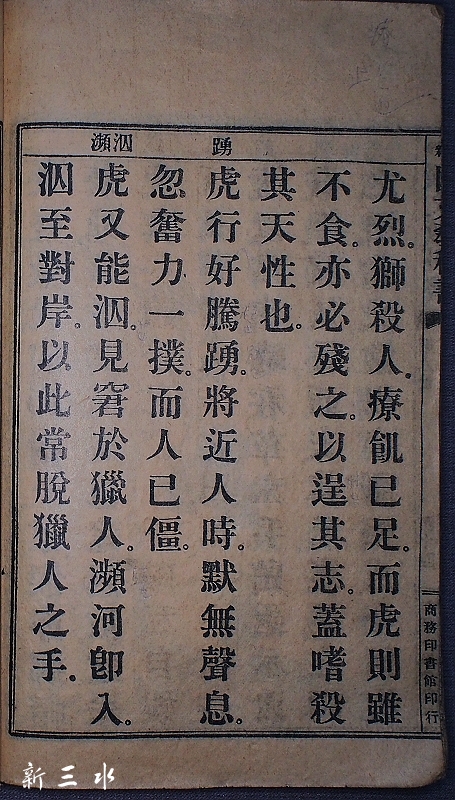 尤烈。獅殺人。療飢已足。而虎則雖
不食。亦必殘之。以逞其志。蓋嗜殺
其天性也。
虎行好騰踴。將近人時。默無聲息。
忽奮力一撲。而人已僵。
虎又能泅。見窘於獵人。瀕河卽入。
泅至對岸。以此常脫獵人之手。
踴
泅
瀕
商務印書館印行
新三水